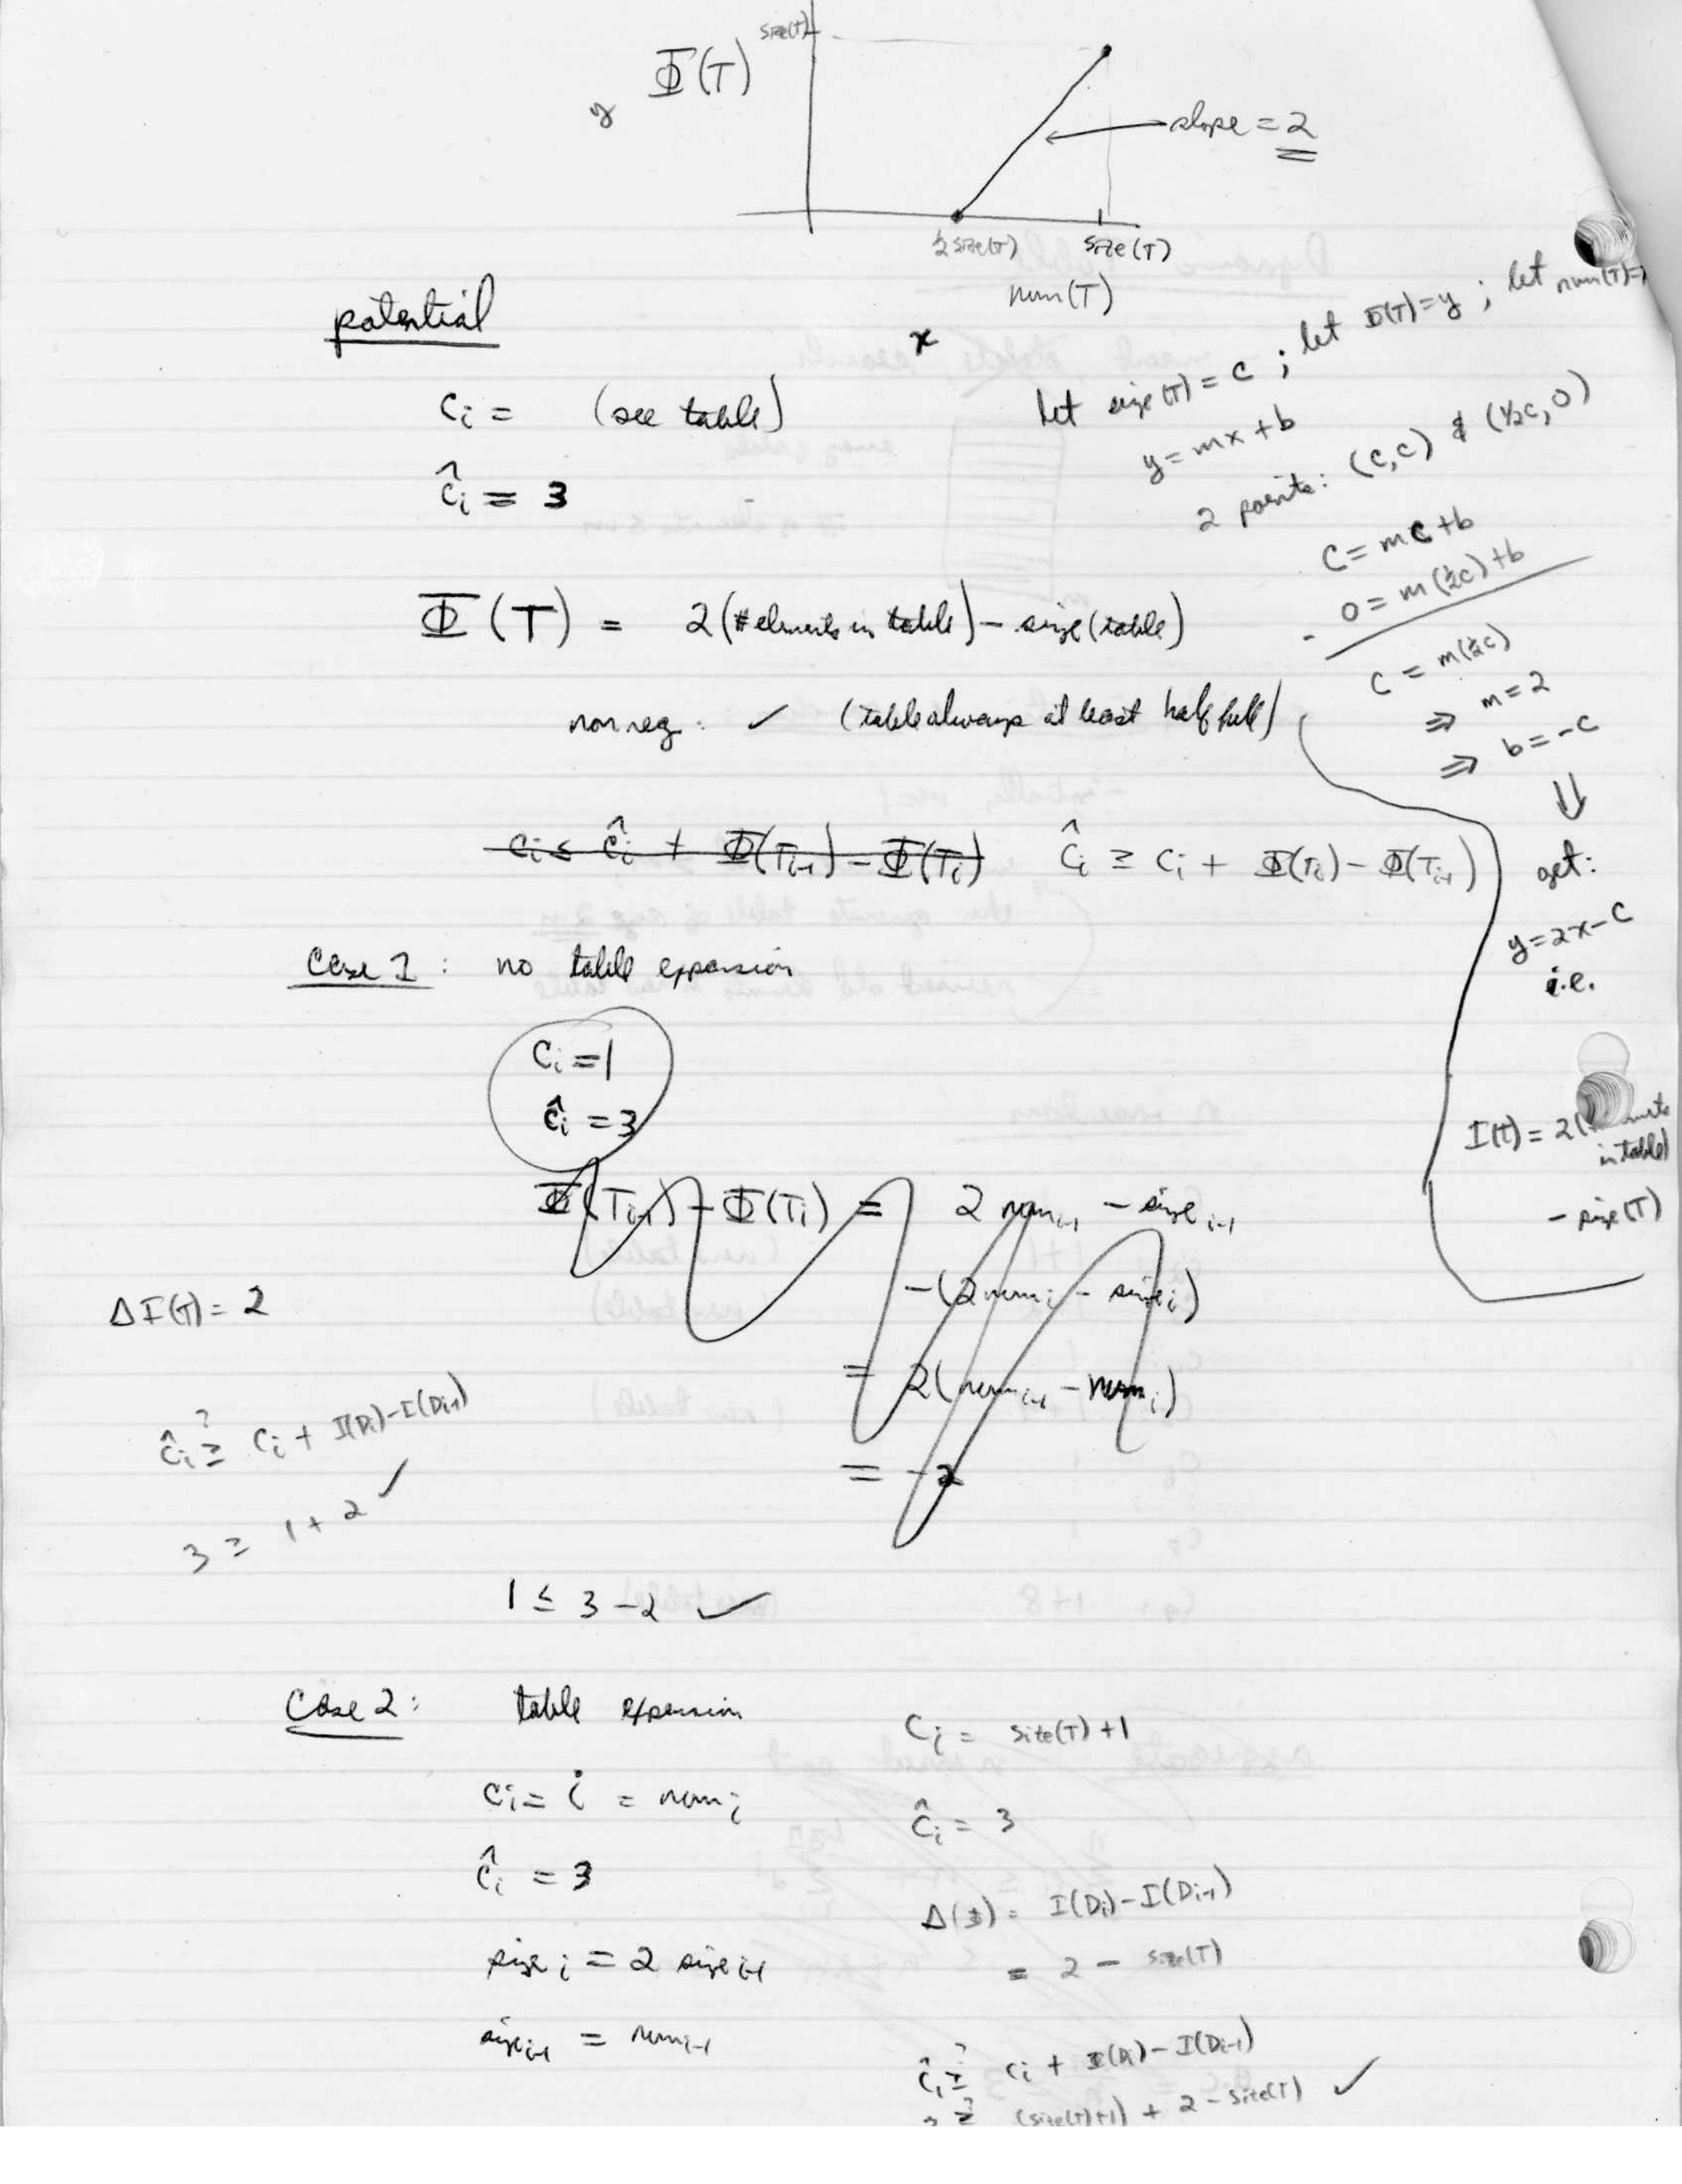 size(T)
Φ(T)
y
slope = 2
½ size(T)
size(T)
num(T)
x
potential
Ci = (see table)
Ĉi = 3
let size(T) = C ; let Φ(T)=y ; let num(T)=
y = mx + b
2 points: (C,C) & (½C,0)
C = mC + b
- 0 = m(½C) + b
C = m(½C)
⇒ m = 2
⇒ b = -C
⇓
get:
y = 2x - C
i.e.
Φ(T) = 2(
in table)
- size(T)
Φ(T) = 2(# elements in table) - size(table)
nonneg: ✓ (table always at least half full)
Ci ≤ Ĉi + Φ(Ti-1) - Φ(Ti)
Ĉi ≥ Ci + Φ(Ti) - Φ(Ti-1)
Case 1: no table expansion
Ci = 1
Ĉi = 3
Φ(Ti-1) - Φ(Ti) = 2 numi-1 - sizei-1
- (2 numi - sizei)
= 2(numi-1 - numi)
= -2
ΔΦ(T) = 2
Ĉi ≥? Ci + Φ(Di) - Φ(Di-1)
3 ≥ 1 + 2 ✓
1 ≤ 3 - 2 ✓
Case 2: table expansion
Ci = i = numi
Ĉi = 3
sizei = 2 sizei-1
sizei-1 = numi-1
Ci = size(T) + 1
Ĉi = 3
Δ(Φ) = Φ(Di) - Φ(Di-1)
= 2 - size(T)
Ĉi ≥? Ci + Φ(Di) - Φ(Di-1)
3 ≥? (size(T)+1) + 2 - size(T) ✓